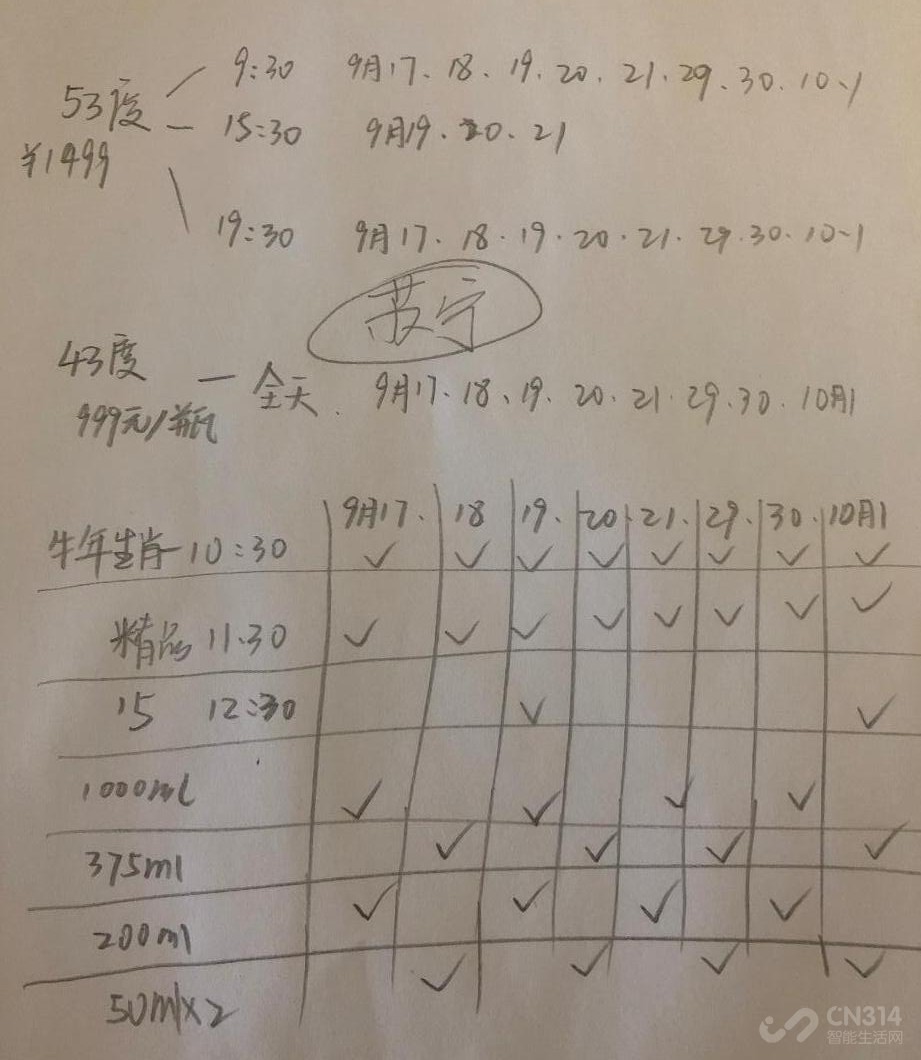 9:30 9月17、18、19、20、21、29、30、10-1
53度 15:30 9月19、20、21
¥1499
19:30 9月17、18、19、20、21、29、30、10-1
苏宁
43度 — 全天 9月17、18、19、20、21、29、30、10月1
999元/瓶
9月17、 18 19、 20 21、 29、 30、 10月1
牛年生肖 10:30 ✓ ✓ ✓ ✓ ✓ ✓ ✓ ✓
精品 11:30 ✓ ✓ ✓ ✓ ✓ ✓ ✓ ✓
15 12:30 ✓ ✓
1000ml ✓ ✓ ✓ ✓
375ml ✓ ✓ ✓ ✓
200ml ✓ ✓ ✓ ✓
50ml×2 ✓ ✓ ✓ ✓
CN314
智能生活网